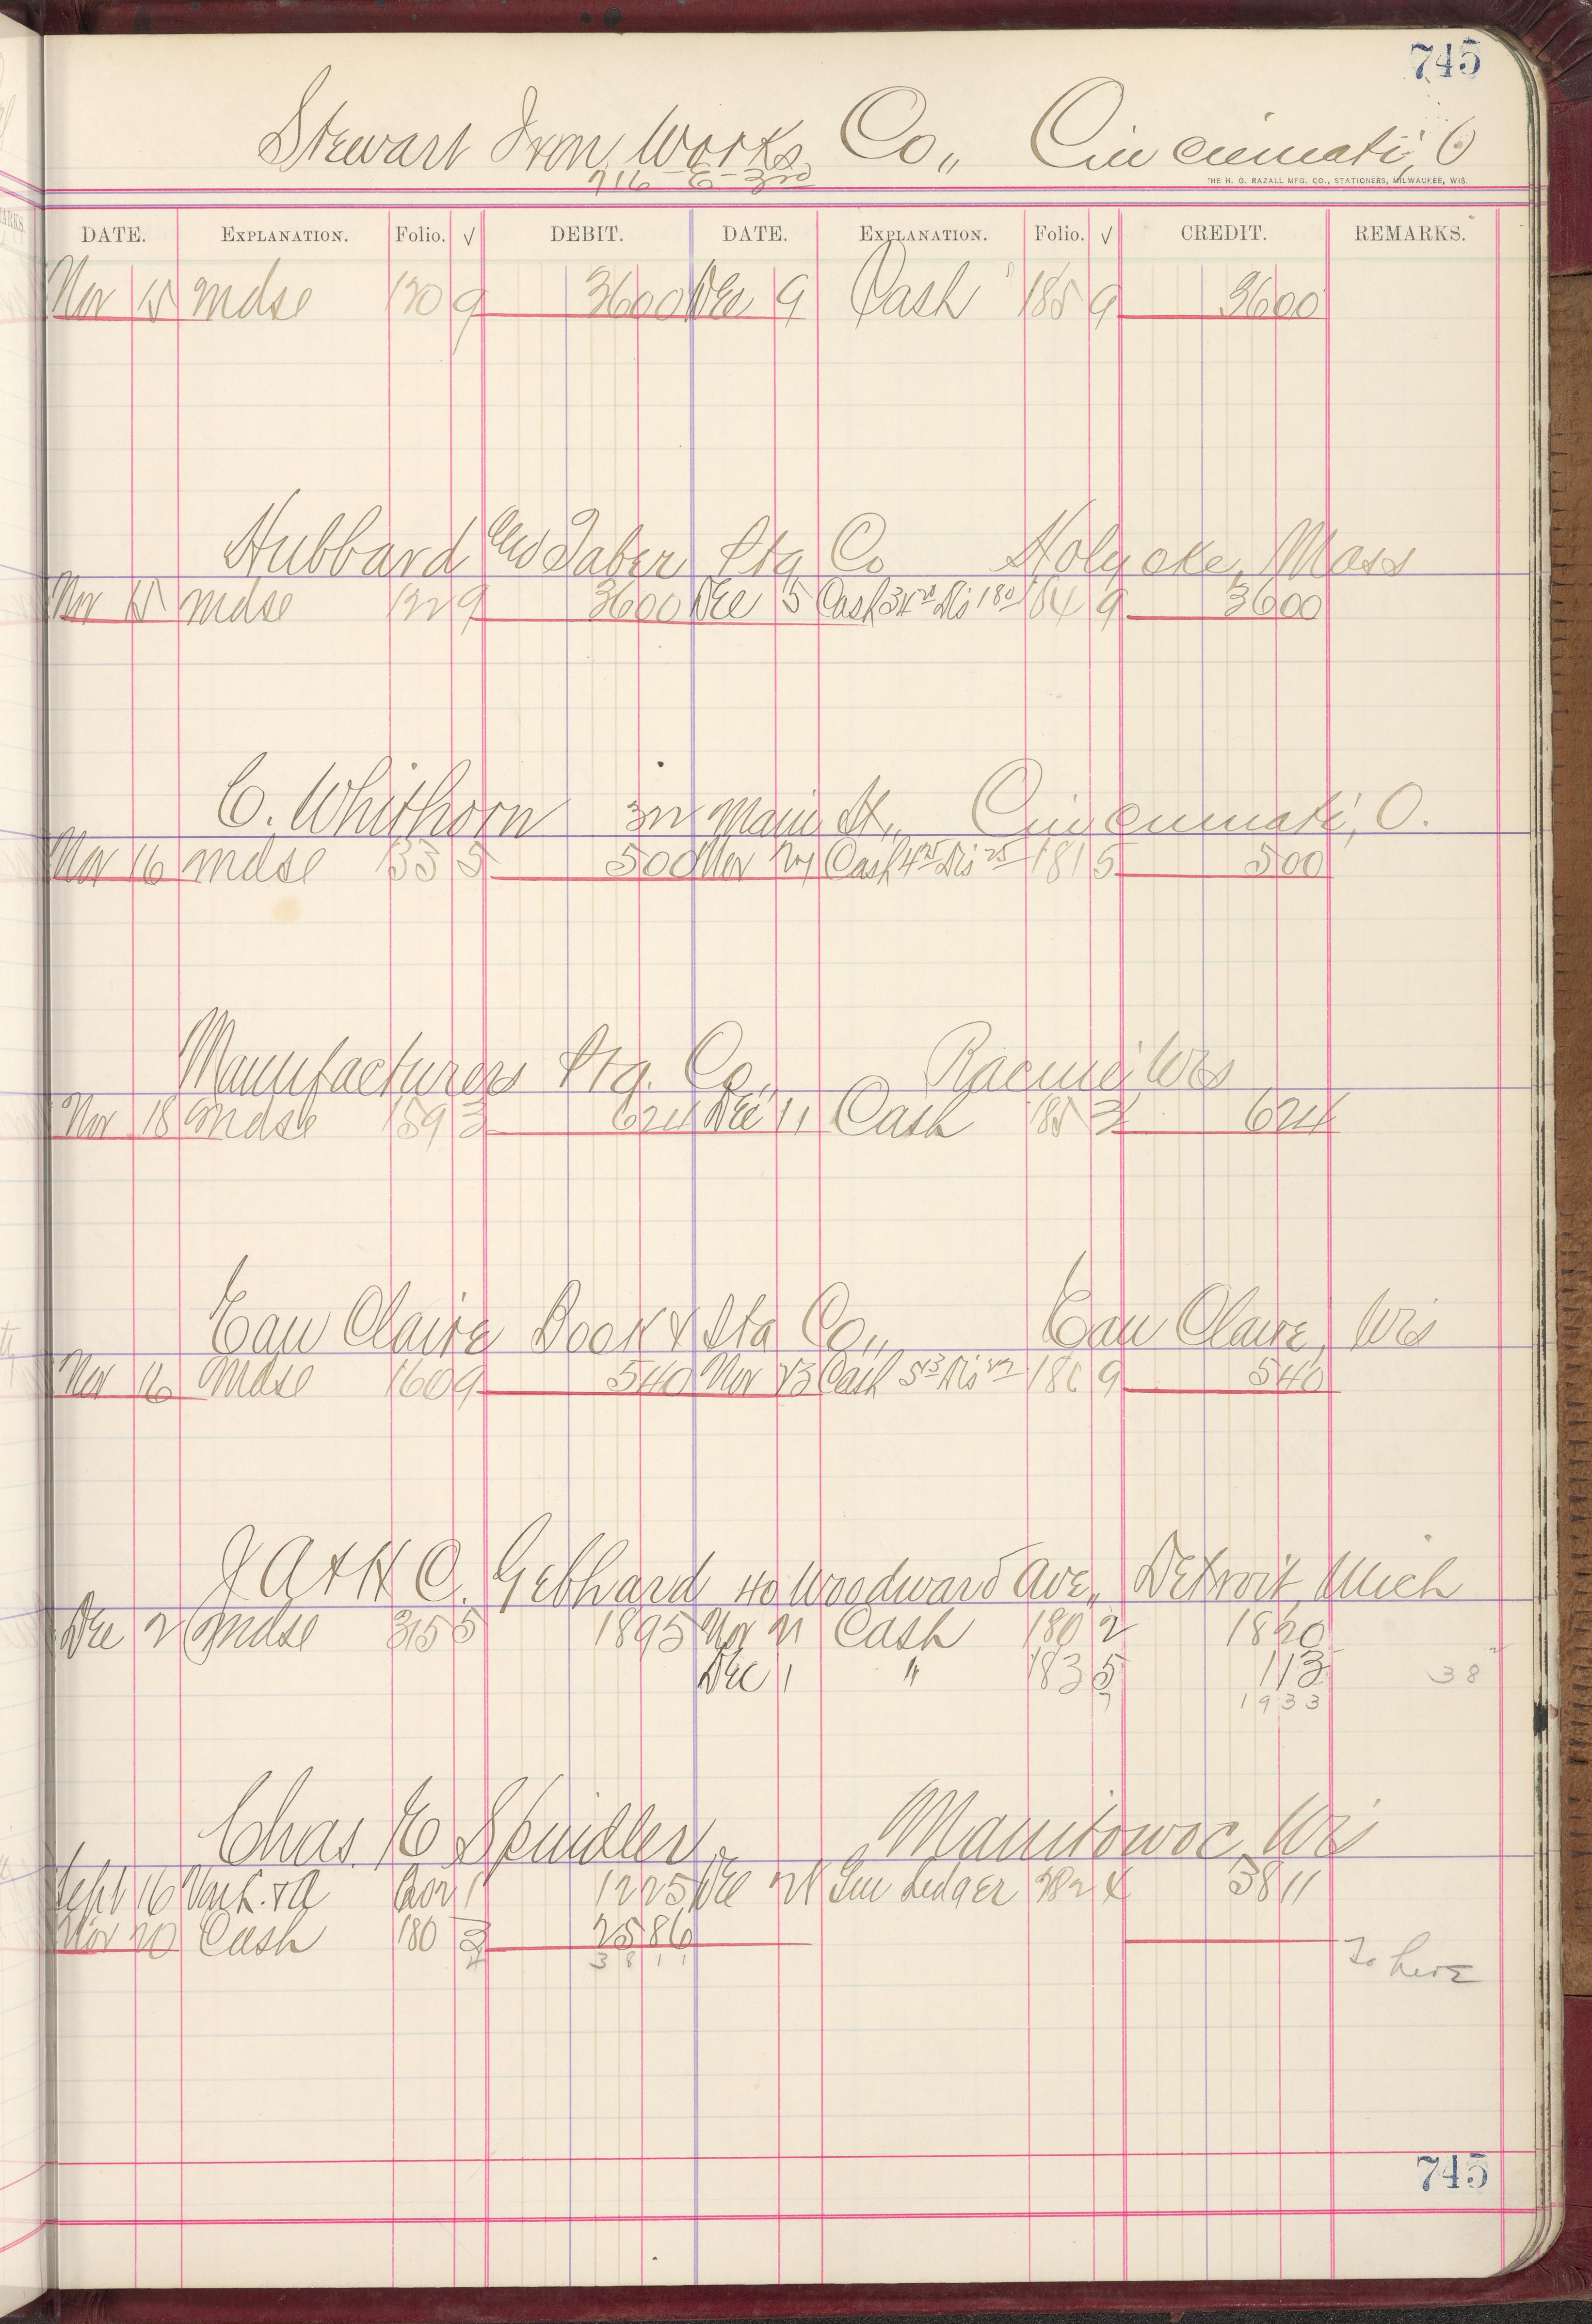 745
Stewart Iron Works Co,, Cincinnati, O
716 E - 3rd
THE H. G. RAZALL MFG. CO., STATIONERS, MILWAUKEE, WIS.
DATE. EXPLANATION. Folio. √ DEBIT. DATE. EXPLANATION. Folio. √ CREDIT. REMARKS.
Nov 15 Mdse 130 9 3600 Dec 9 Cash 185 9 3600
Hubbard & Taber Ptg Co Holyoke, Mass
Nov 15 Mdse 132 9 3600 Dec 5 Cash 34 20 Dis 1 80 184 9 3600
C. Whithorn 312 Main St,, Cincinnati, O.
Nov 16 Mdse 135 5 500 Nov 24 Cash 4 75 Dis 25 181 5 500
Manufacturers Ptg. Co, Racine, Wis
Nov 18 Mdse 159 3 624 Dec 11 Cash 185 3 624
Eau Claire Book & Sta Co,, Eau Claire, Wis
Nov 16 Mdse 160 9 540 Nov 23 Cash 5 13 Dis 27 180 9 540
J A & H C. Gebhard 40 Woodward Ave,, Detroit, Mich
Dec 2 Mdse 315 5 1895 Nov 21 Cash 180 2 1820
Dec 1 " 183 5 113 38
7 1933
Chas. E Spindler, Manitowoc, Wis
Sept 16 1225 Dec 21 Gen Ledger 282 4 3811
Nov 20 Cash 180 3 2586
4 3811
To here
745